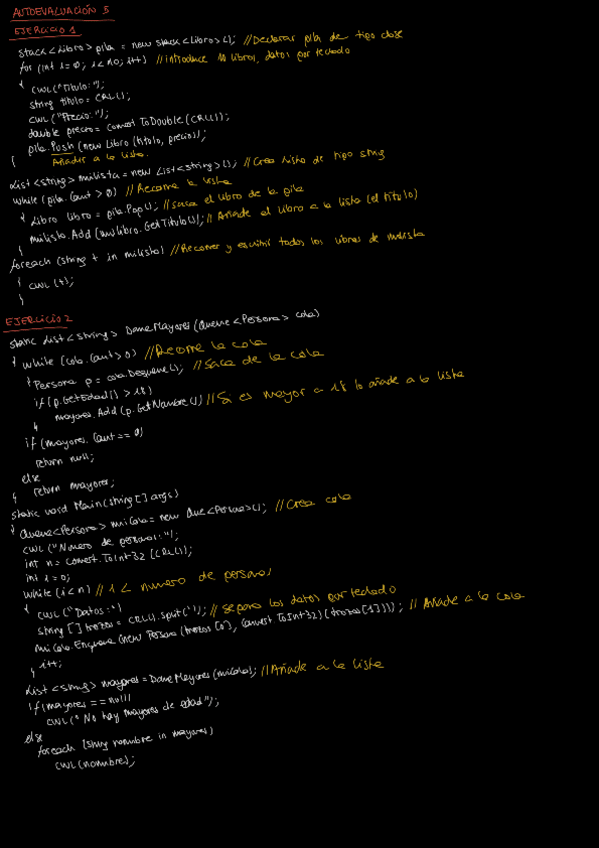 AUTOEVALUACIÓN 5
EJERCICIO 1
stack<Libro> pila = new stack<Libro>(); //Declarar pila de tipo clase
for (int i=0; i<10; i++) //introduce 10 libros, datos por teclado
{ CWL("Titulo:");
string titulo = CRL();
CWL("Precio:");
double precio = Convert.ToDouble(CRL());
pila.Push(new Libro(titulo, precio));
} Añadir a la lista.
List<string> milista = new List<string>(); //Crea lista de tipo string
while (pila.Count > 0) //Recorre la lista
{ Libro libro = pila.Pop(); //saca el libro de la pila
milista.Add(milibro.GetTitulo()); //Añade el libro a la lista (el titulo)
}
foreach (string t in milista) //Recorrer y escribir todos los libros de milista
{ CWL(t);
}
EJERCICIO 2
static List<string> DameMayores (Queue<Persona> cola)
{ while (cola.Count>0) //Recorre la cola
{ Persona p = cola.Dequeue(); //saca de la cola
if (p.GetEdad() > 18)
mayores.Add(p.GetNombre()) //Si es mayor a 18 lo añade a la lista
}
if (mayores.Count == 0)
return null;
else
} return mayores;
static void Main(string[] args)
{ Queue<Persona> miCola = new Que<Persona>(); //Crea cola
CWL("Numero de personas:");
int n = convert.ToInt32(CRL());
int i = 0;
while (i<n) // i < numero de personas
{ CWL("Datos:")
string[] trozos = CRL().Split(' '); // Separa los datos por teclado
miCola.Enqueue(new Persona(trozos[0], Convert.ToInt32)(trozos[1]))); // Añade a la cola
i++;
}
List<string> mayores = DameMayores(micola); //Añade a la lista
if (mayores == null)
CWL("No hay mayores de edad");
else
foreach (string nombre in mayores)
CWL(nombre);